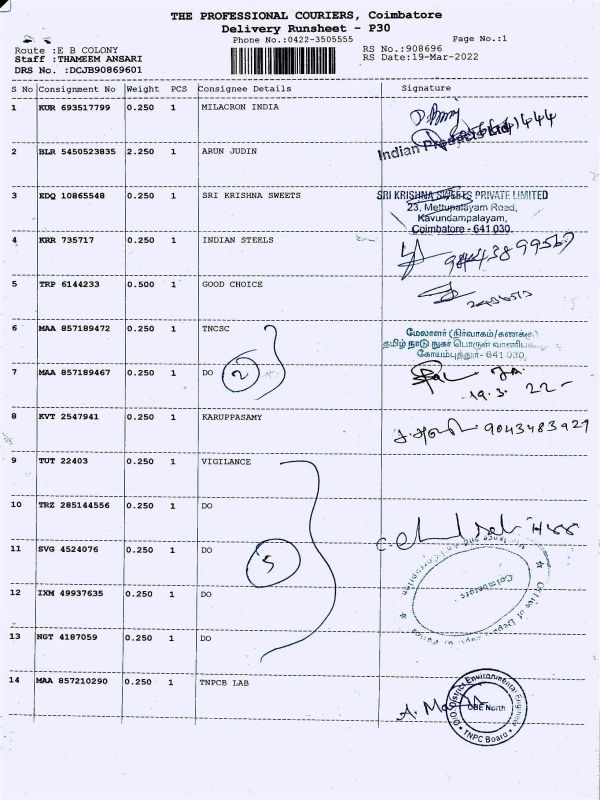 THE PROFESSIONAL COURIERS, Coimbatore
Delivery Runsheet - P30
Phone No.:0422-3505555 Page No.:1
Route :E B COLONY RS No.:908696
Staff :THAMEEM ANSARI RS Date:19-Mar-2022
DRS No. :DCJB90869601
S No Consignment No Weight PCS Consignee Details Signature
1 KUR 693517799 0.250 1 MILACRON INDIA
2 BLR 5450523835 2.250 1 ARUN JUDIN
Indian
3 EDQ 10865548 0.250 1 SRI KRISHNA SWEETS SRI KRISHNA SWEETS PRIVATE LIMITED
23, Mettupalayam Road,
Kavundampalayam,
Coimbatore - 641 030.
4 KRR 735717 0.250 1 INDIAN STEELS
5 TRP 6144233 0.500 1 GOOD CHOICE
6 MAA 857189472 0.250 1 TNCSC மேலாளர் (நிர்வாகம்/கணக்கு)
தமிழ் நாடு நுகர் பொருள்
கோயம்புத்தூர்- 641 030.
7 MAA 857189467 0.250 1 DO 2
19.3.22
8 KVT 2547941 0.250 1 KARUPPASAMY 9043483927
9 TUT 22403 0.250 1 VIGILANCE
10 TRZ 285144556 0.250 1 DO
11 SVG 4524076 0.250 1 DO 5
Coimbatore
12 IXM 49937635 0.250 1 DO
13 NGT 4187059 0.250 1 DO
14 MAA 857210290 0.250 1 TNPCB LAB
District Environmental Engineer
CBE North
TNPC Board